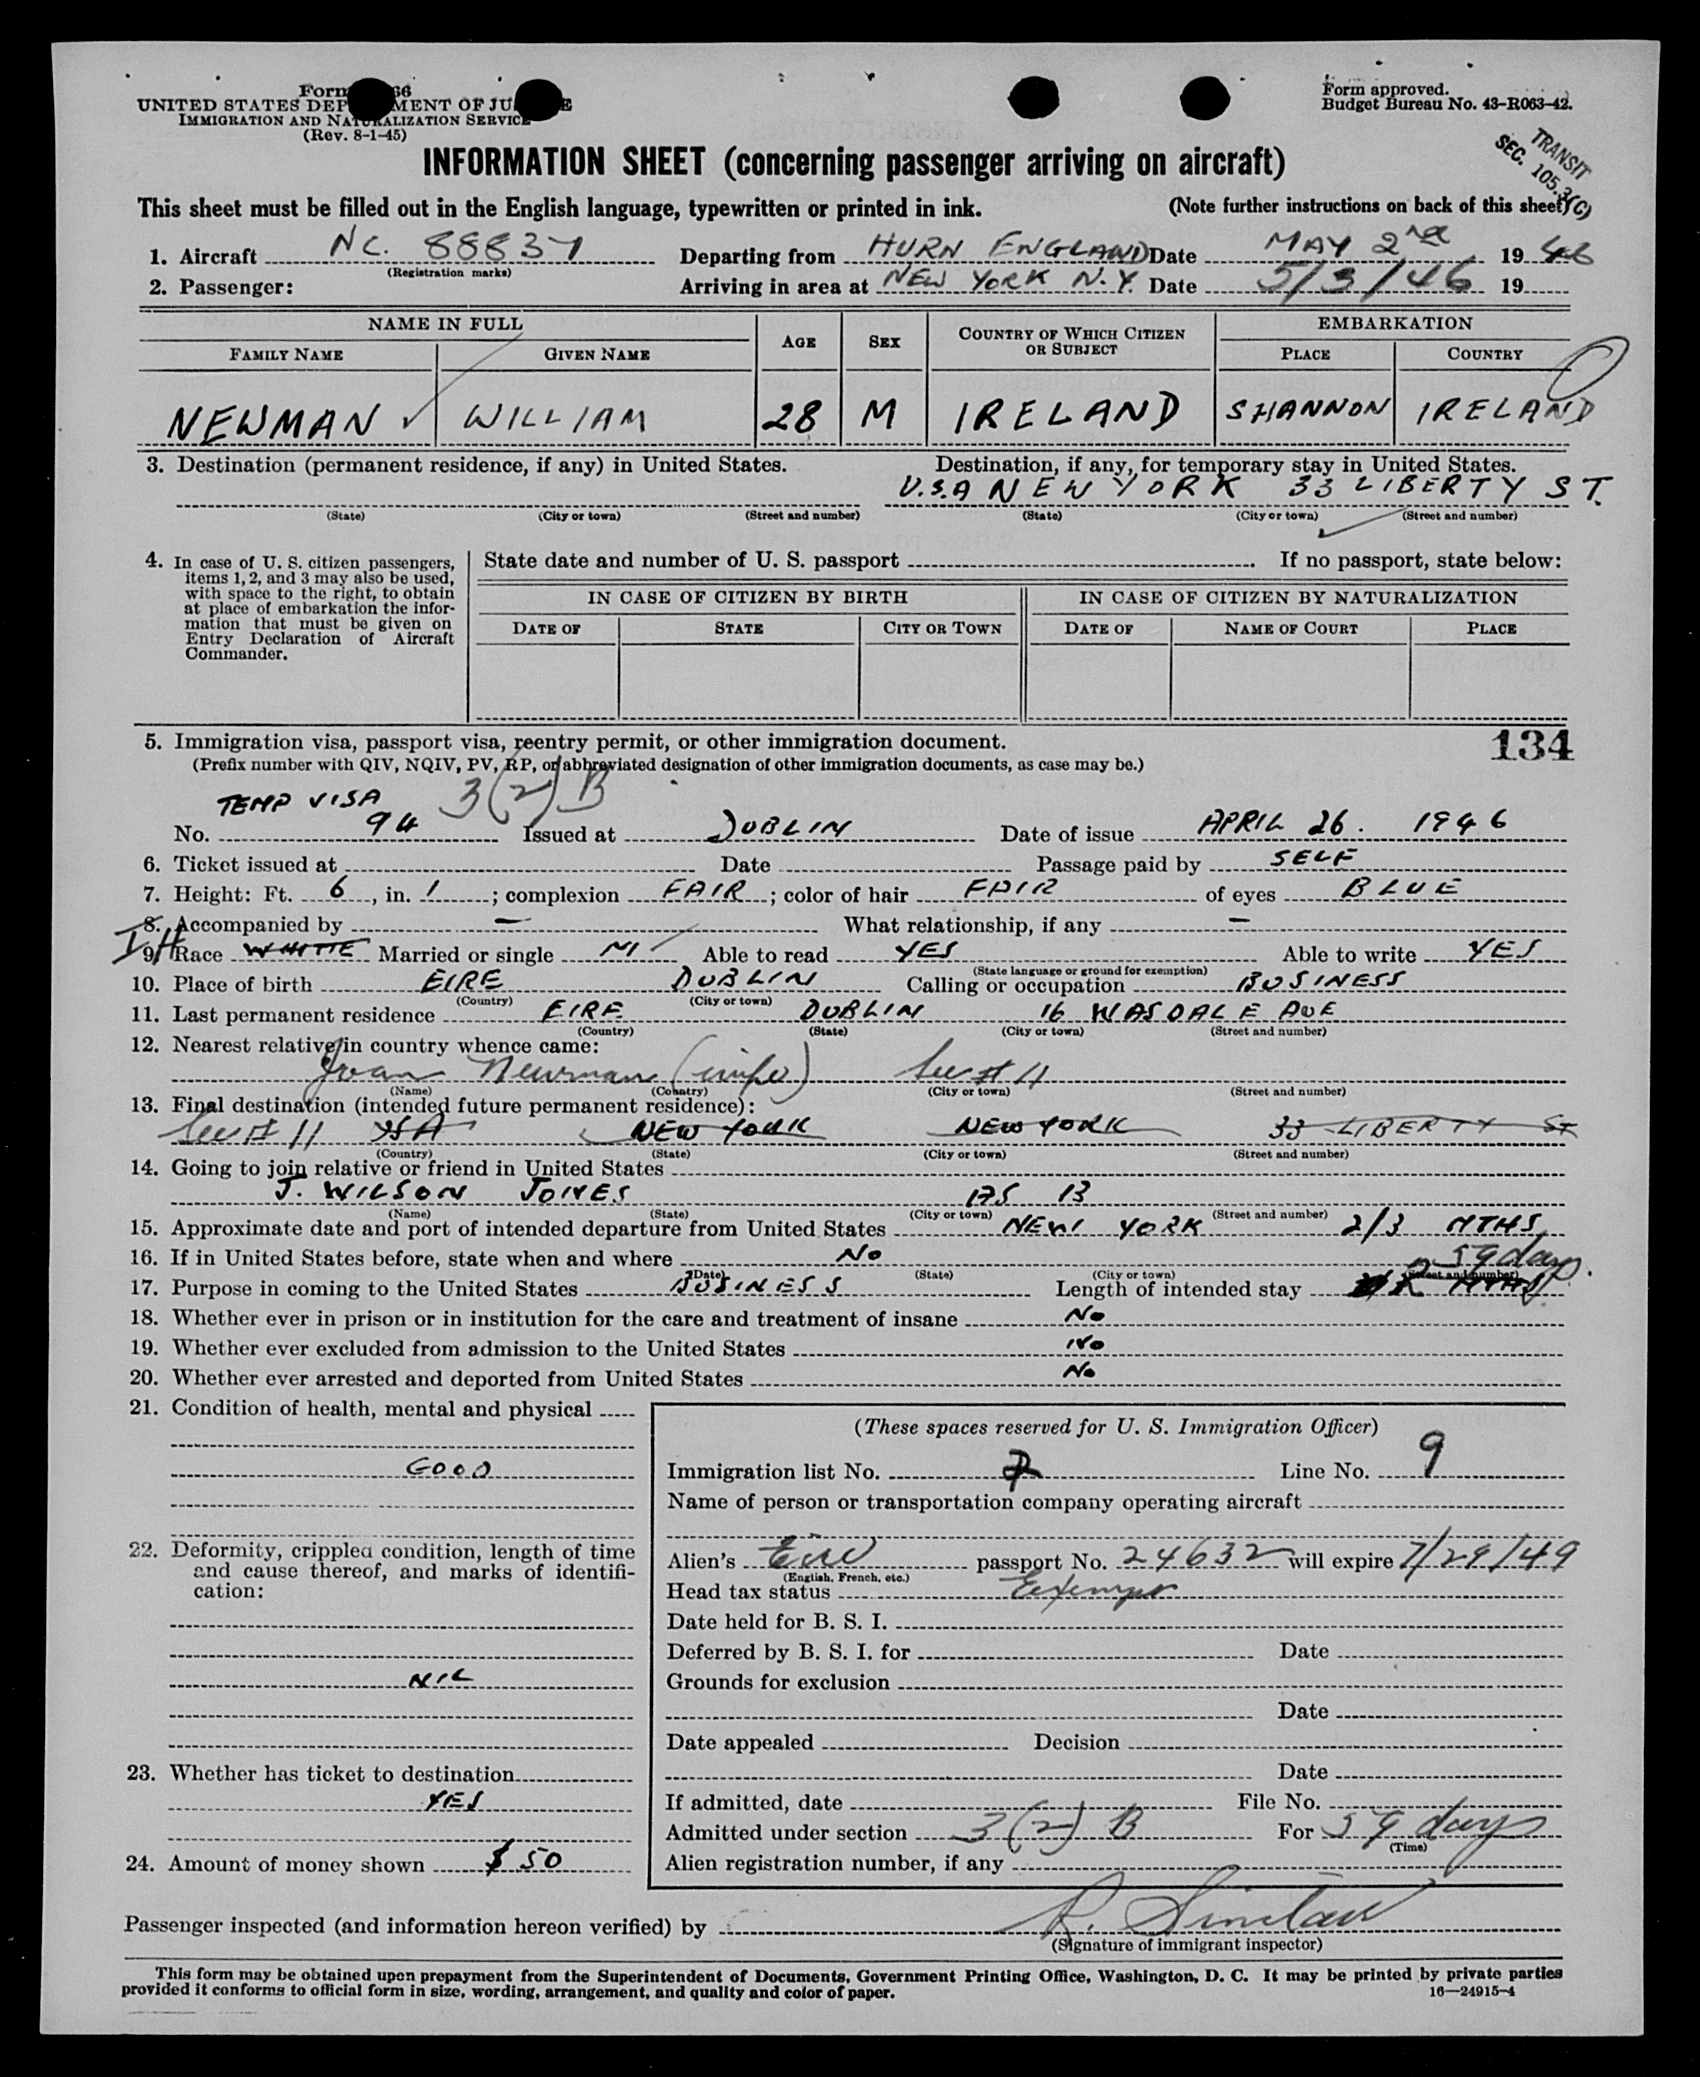 Form 66
UNITED STATES DEP MENT OF JU E
IMMIGRATION AND NATURALIZATION SERVICE
(Rev. 8-1-45)
Form approved.
Budget Bureau No. 43-R063-42.
TRANSIT
SEC. 105.3(C)
INFORMATION SHEET (concerning passenger arriving on aircraft)
This sheet must be filled out in the English language, typewritten or printed in ink. (Note further instructions on back of this sheet)
1. Aircraft NC. 88837 Departing from HURN ENGLAND Date MAY 2nd 1946
(Registration marks)
2. Passenger: Arriving in area at NEW YORK N.Y. Date 5/3/46 19
NAME IN FULL AGE SEX COUNTRY OF WHICH CITIZEN OR SUBJECT EMBARKATION
FAMILY NAME GIVEN NAME PLACE COUNTRY
NEWMAN WILLIAM 28 M IRELAND SHANNON IRELAND
3. Destination (permanent residence, if any) in United States. Destination, if any, for temporary stay in United States.
U.S.A NEW YORK 33 LIBERTY ST.
(State) (City or town) (Street and number) (State) (City or town) (Street and number)
4. In case of U. S. citizen passengers, items 1, 2, and 3 may also be used, with space to the right, to obtain at place of embarkation the information that must be given on Entry Declaration of Aircraft Commander.
State date and number of U. S. passport If no passport, state below:
IN CASE OF CITIZEN BY BIRTH IN CASE OF CITIZEN BY NATURALIZATION
DATE OF STATE CITY OR TOWN DATE OF NAME OF COURT PLACE
5. Immigration visa, passport visa, reentry permit, or other immigration document. 134
(Prefix number with QIV, NQIV, PV, RP, or abbreviated designation of other immigration documents, as case may be.)
TEMP VISA 3(2)B
No. 94 Issued at DUBLIN Date of issue APRIL 26. 1946
6. Ticket issued at Date Passage paid by SELF
7. Height: Ft. 6, in. 1; complexion FAIR; color of hair FAIR of eyes BLUE
8. Accompanied by — What relationship, if any —
9. Race WHITE Married or single M Able to read YES Able to write YES
(State language or ground for exemption)
10. Place of birth EIRE DUBLIN Calling or occupation BUSINESS
(Country) (City or town)
11. Last permanent residence EIRE DUBLIN 16 WASDALE AVE
(Country) (State) (City or town) (Street and number)
12. Nearest relative in country whence came:
Joan Newman (wife) See # 11
(Name) (Country) (City or town) (Street and number)
13. Final destination (intended future permanent residence):
See # 11 USA NEW YORK NEW YORK 33 LIBERTY ST
(Country) (State) (City or town) (Street and number)
14. Going to join relative or friend in United States
J. WILSON JONES AS 13
(Name) (State) (City or town) (Street and number)
15. Approximate date and port of intended departure from United States NEW YORK 2/3 MTHS
16. If in United States before, state when and where No 59 days.
(Date) (State) (City or town) (Street and number)
17. Purpose in coming to the United States BUSINESS Length of intended stay 2 MTHS
18. Whether ever in prison or in institution for the care and treatment of insane No
19. Whether ever excluded from admission to the United States No
20. Whether ever arrested and deported from United States No
21. Condition of health, mental and physical
GOOD
22. Deformity, crippled condition, length of time and cause thereof, and marks of identification:
NIL
23. Whether has ticket to destination
YES
24. Amount of money shown $ 50
(These spaces reserved for U. S. Immigration Officer)
Immigration list No. 7 Line No. 9
Name of person or transportation company operating aircraft
Alien's Eire passport No. 24632 will expire 7/29/49
(English, French, etc.)
Head tax status Exempt
Date held for B. S. I.
Deferred by B. S. I. for Date
Grounds for exclusion
Date
Date appealed Decision
Date
If admitted, date File No.
Admitted under section 3(2)B For 59 days
(Time)
Alien registration number, if any
Passenger inspected (and information hereon verified) by R. Sinclair
(Signature of immigrant inspector)
This form may be obtained upon prepayment from the Superintendent of Documents, Government Printing Office, Washington, D. C. It may be printed by private parties
provided it conforms to official form in size, wording, arrangement, and quality and color of paper. 16—24915-4